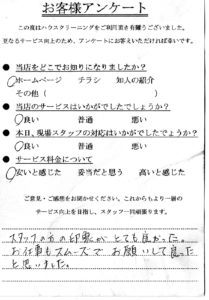 お客様アンケート
この度はハウスクリーニングをご利用頂き有難うございました。
更なるサービス向上のため、アンケートにお答えいただければ幸いです。
●当店をどこでお知りになりましたか？
○ホームページ　チラシ　知人の紹介
その他（　　　　　　　　）
●当店のサービスはいかがでしたでしょうか？
○良い　普通　悪い
●本日、現場スタッフの対応はいかがでしたでしょうか？
○良い　普通　悪い
●サービス料金について
○安いと感じた　妥当だと思う　高いと感じた
ご意見・ご感想をお聞かせください。これからもより一層の
サービス向上を目指し、スタッフ一同頑張ります。
スタッフの方の印象がとても良かった。
お仕事もスムーズでお願いして良かった
と思いました。